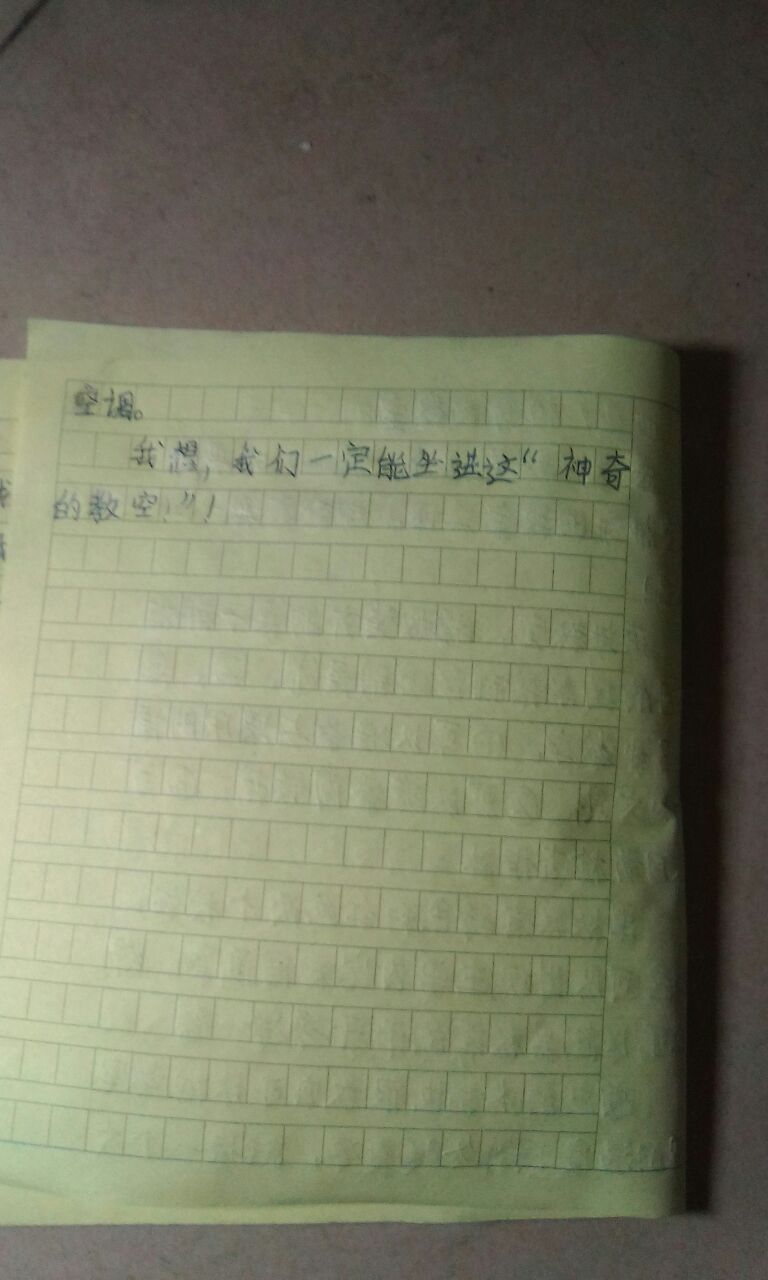 空调。
我想，我们一定能坐进这“神奇
的教室”！